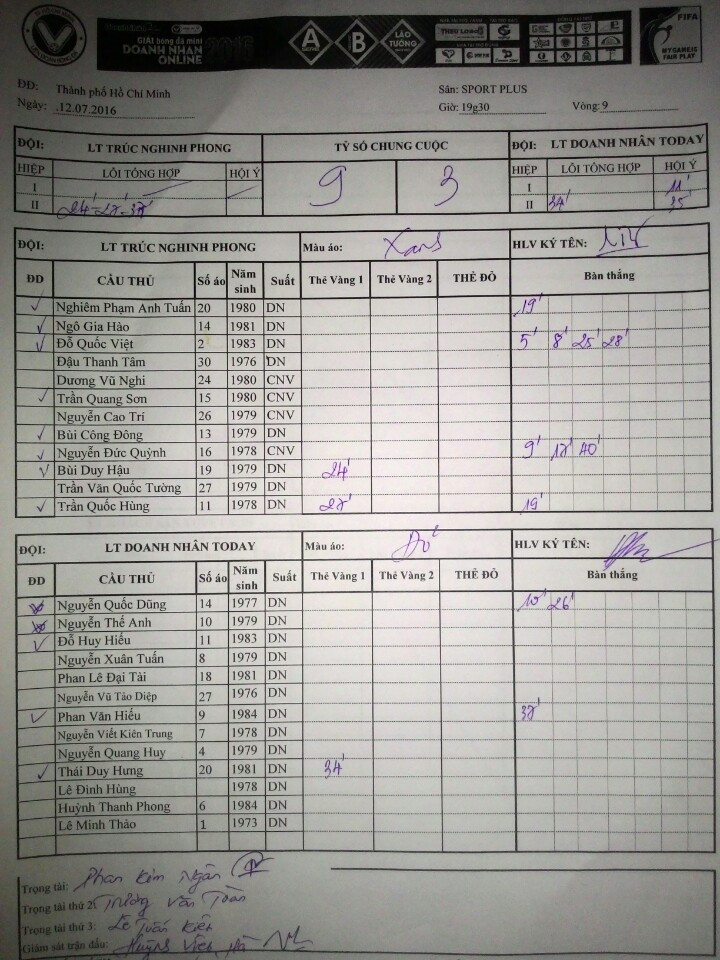 GIẢI bóng đá mini
DOANH NHÂN
ONLINE 2016
A B LÃO TƯỚNG
FIFA
MY GAME IS
FAIR PLAY
ĐĐ: Thành phố Hồ Chí Minh Sân: SPORT PLUS
Ngày: .12.07.2016 Giờ: 19g30 Vòng: 9
ĐỘI: LT TRÚC NGHINH PHONG TỶ SỐ CHUNG CUỘC ĐỘI: LT DOANH NHÂN TODAY
HIỆP LỖI TỔNG HỢP HỘI Ý 9 3 HIỆP LỖI TỔNG HỢP HỘI Ý
I I 11'
II 24'-28'-38' II 34' 35'
ĐỘI: LT TRÚC NGHINH PHONG Màu áo: Xanh HLV KÝ TÊN:
ĐD CẦU THỦ Số áo Năm sinh Suất Thẻ Vàng 1 Thẻ Vàng 2 THẺ ĐỎ Bàn thắng
✓ Nghiêm Phạm Anh Tuấn 20 1980 DN 19'
✓ Ngô Gia Hào 14 1981 DN
✓ Đỗ Quốc Việt 2 1983 DN 5' 8' 25' 28'
Đậu Thanh Tâm 30 1976 DN
Dương Vũ Nghi 24 1980 CNV
✓ Trần Quang Sơn 15 1980 CNV
Nguyễn Cao Trí 26 1979 CNV
✓ Bùi Công Đông 13 1979 DN
✓ Nguyễn Đức Quỳnh 16 1978 CNV 9' 18' 40'
✓ Bùi Duy Hậu 19 1979 DN 24'
Trần Văn Quốc Tường 27 1979 DN
✓ Trần Quốc Hùng 11 1978 DN 28' 19'
ĐỘI: LT DOANH NHÂN TODAY Màu áo: Đỏ HLV KÝ TÊN:
ĐD CẦU THỦ Số áo Năm sinh Suất Thẻ Vàng 1 Thẻ Vàng 2 THẺ ĐỎ Bàn thắng
Nguyễn Quốc Dũng 14 1977 DN 10' 26'
Nguyễn Thế Anh 10 1979 DN
✓ Đỗ Huy Hiếu 11 1983 DN
Nguyễn Xuân Tuấn 8 1979 DN
Phan Lê Đại Tài 18 1981 DN
Nguyễn Vũ Táo Diệp 27 1976 DN
✓ Phan Văn Hiếu 9 1984 DN 38'
Nguyễn Viết Kiên Trung 7 1978 DN
Nguyễn Quang Huy 4 1979 DN
✓ Thái Duy Hưng 20 1981 DN 34'
Lê Đình Hùng 1978 DN
Huỳnh Thanh Phong 6 1984 DN
Lê Minh Thảo 1 1973 DN
Trọng tài: Phan Kim Ngân
Trọng tài thứ 2: Trương Văn Toàn
Trọng tài thứ 3: Lê Tuấn Kiên
Giám sát trận đấu: Huỳnh Viên